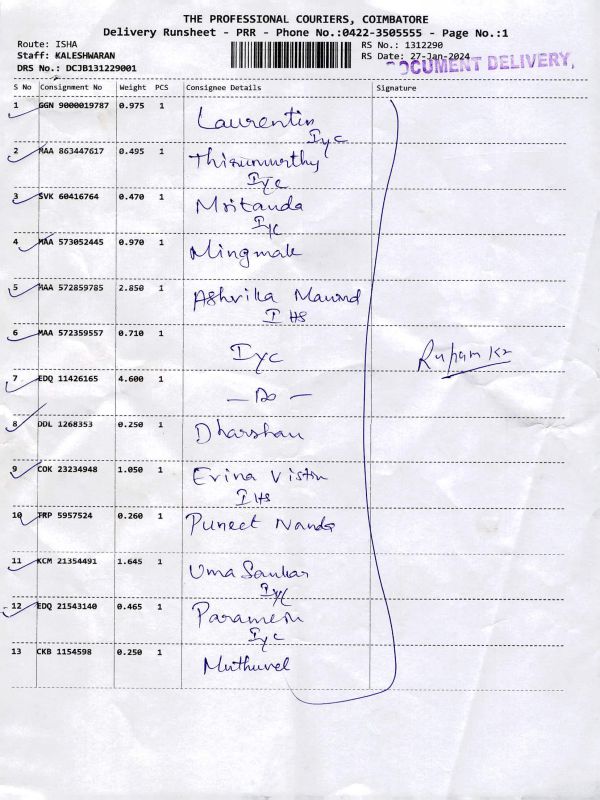 THE PROFESSIONAL COURIERS, COIMBATORE
Delivery Runsheet - PRR - Phone No.:0422-3505555 - Page No.:1
Route: ISHA
Staff: KALESHWARAN
DRS No.: DCJB131229001
RS No.: 1312290
RS Date: 27-Jan-2024
DOCUMENT DELIVERY,
S No Consignment No Weight PCS Consignee Details Signature
1 GGN 9000019787 0.975 1 Laurentin
Iyc
2 MAA 863447617 0.495 1 Thirumurthy
Iyc
3 SVK 60416764 0.470 1 Mritanda
Iyc
4 MAA 573052445 0.970 1 Mingmale
5 MAA 572859785 2.850 1 Ashrika
I HS
6 MAA 572359557 0.710 1 Iyc
7 EDQ 11426165 4.600 1 — Do —
8 DDL 1268353 0.250 1 Dharshan
9 COK 23234948 1.050 1 Erina
I HS
10 TRP 5957524 0.260 1 Puneet Nanda
11 KCM 21354491 1.645 1 Uma Sankar
Iyc
12 EDQ 21543140 0.465 1 Paramesh
Iyc
13 CKB 1154598 0.250 1 Muthuvel
Rupam Kr